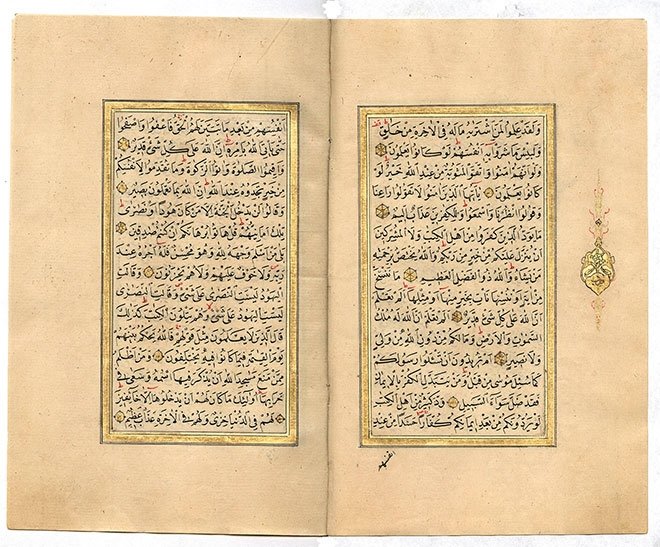 وَلَقَدْ عَلِمُوا لَمَنِ اشْتَرٰيهُ مَالَهُ فِي الْاٰخِرَةِ مِنْ خَلَاقٍ
وَلَبِئْسَ مَا شَرَوْا بِهِ اَنْفُسَهُمْ لَوْ كَانُوا يَعْلَمُونَ
وَلَوْ اَنَّهُمْ اٰمَنُوا وَاتَّقَوْا لَمَثُوبَةٌ مِنْ عِنْدِ اللّٰهِ خَيْرٌ لَوْ
كَانُوا يَعْلَمُونَ يَا اَيُّهَا الَّذِينَ اٰمَنُوا لَا تَقُولُوا رَاعِنَا
وَقُولُوا انْظُرْنَا وَاسْمَعُوا وَلِلْكٰفِرِينَ عَذَابٌ اَلِيمٌ
مَا يَوَدُّ الَّذِينَ كَفَرُوا مِنْ اَهْلِ الْكِتٰبِ وَلَا الْمُشْرِكِينَ
اَنْ يُنَزَّلَ عَلَيْكُمْ مِنْ خَيْرٍ مِنْ رَبِّكُمْ وَاللّٰهُ يَخْتَصُّ بِرَحْمَتِهِ
مَنْ يَشَاءُ وَاللّٰهُ ذُو الْفَضْلِ الْعَظِيمِ مَا نَنْسَخْ
مِنْ اٰيَةٍ اَوْ نُنْسِهَا نَأْتِ بِخَيْرٍ مِنْهَا اَوْ مِثْلِهَا اَلَمْ تَعْلَمْ
اَنَّ اللّٰهَ عَلٰى كُلِّ شَيْءٍ قَدِيرٌ اَلَمْ تَعْلَمْ اَنَّ اللّٰهَ لَهُ مُلْكُ
السَّمٰوَاتِ وَالْاَرْضِ وَمَا لَكُمْ مِنْ دُونِ اللّٰهِ مِنْ وَلِيٍّ
وَلَا نَصِيرٍ اَمْ تُرِيدُونَ اَنْ تَسْئَلُوا رَسُولَكُمْ
كَمَا سُئِلَ مُوسٰى مِنْ قَبْلُ وَمَنْ يَتَبَدَّلِ الْكُفْرَ بِالْاِيمَانِ
فَقَدْ ضَلَّ سَوَاءَ السَّبِيلِ وَدَّ كَثِيرٌ مِنْ اَهْلِ الْكِتٰبِ
لَوْ يَرُدُّونَكُمْ مِنْ بَعْدِ اِيمَانِكُمْ كُفَّارًا حَسَدًا مِنْ عِنْدِ
انفسهم
اَنْفُسِهِمْ مِنْ بَعْدِ مَا تَبَيَّنَ لَهُمُ الْحَقُّ فَاعْفُوا وَاصْفَحُوا
حَتّٰى يَأْتِيَ اللّٰهُ بِاَمْرِهِ اِنَّ اللّٰهَ عَلٰى كُلِّ شَيْءٍ قَدِيرٌ
وَاَقِيمُوا الصَّلٰوةَ وَاٰتُوا الزَّكٰوةَ وَمَا تُقَدِّمُوا لِاَنْفُسِكُمْ
مِنْ خَيْرٍ تَجِدُوهُ عِنْدَ اللّٰهِ اِنَّ اللّٰهَ بِمَا تَعْمَلُونَ بَصِيرٌ
وَقَالُوا لَنْ يَدْخُلَ الْجَنَّةَ اِلَّا مَنْ كَانَ هُودًا اَوْ نَصَارٰى
تِلْكَ اَمَانِيُّهُمْ قُلْ هَاتُوا بُرْهَانَكُمْ اِنْ كُنْتُمْ صَادِقِينَ
بَلٰى مَنْ اَسْلَمَ وَجْهَهُ لِلّٰهِ وَهُوَ مُحْسِنٌ فَلَهُ اَجْرُهُ عِنْدَ
رَبِّهِ وَلَا خَوْفٌ عَلَيْهِمْ وَلَا هُمْ يَحْزَنُونَ وَقَالَتِ
الْيَهُودُ لَيْسَتِ النَّصَارٰى عَلٰى شَيْءٍ وَقَالَتِ النَّصَارٰى
لَيْسَتِ الْيَهُودُ عَلٰى شَيْءٍ وَهُمْ يَتْلُونَ الْكِتٰبَ كَذٰلِكَ
قَالَ الَّذِينَ لَا يَعْلَمُونَ مِثْلَ قَوْلِهِمْ فَاللّٰهُ يَحْكُمُ بَيْنَهُمْ
يَوْمَ الْقِيٰمَةِ فِيمَا كَانُوا فِيهِ يَخْتَلِفُونَ وَمَنْ اَظْلَمُ
مِمَّنْ مَنَعَ مَسَاجِدَ اللّٰهِ اَنْ يُذْكَرَ فِيهَا اسْمُهُ وَسَعٰى فِي
خَرَابِهَا اُولٰئِكَ مَا كَانَ لَهُمْ اَنْ يَدْخُلُوهَا اِلَّا خَائِفِينَ
لَهُمْ فِي الدُّنْيَا خِزْيٌ وَلَهُمْ فِي الْاٰخِرَةِ عَذَابٌ عَظِيمٌ